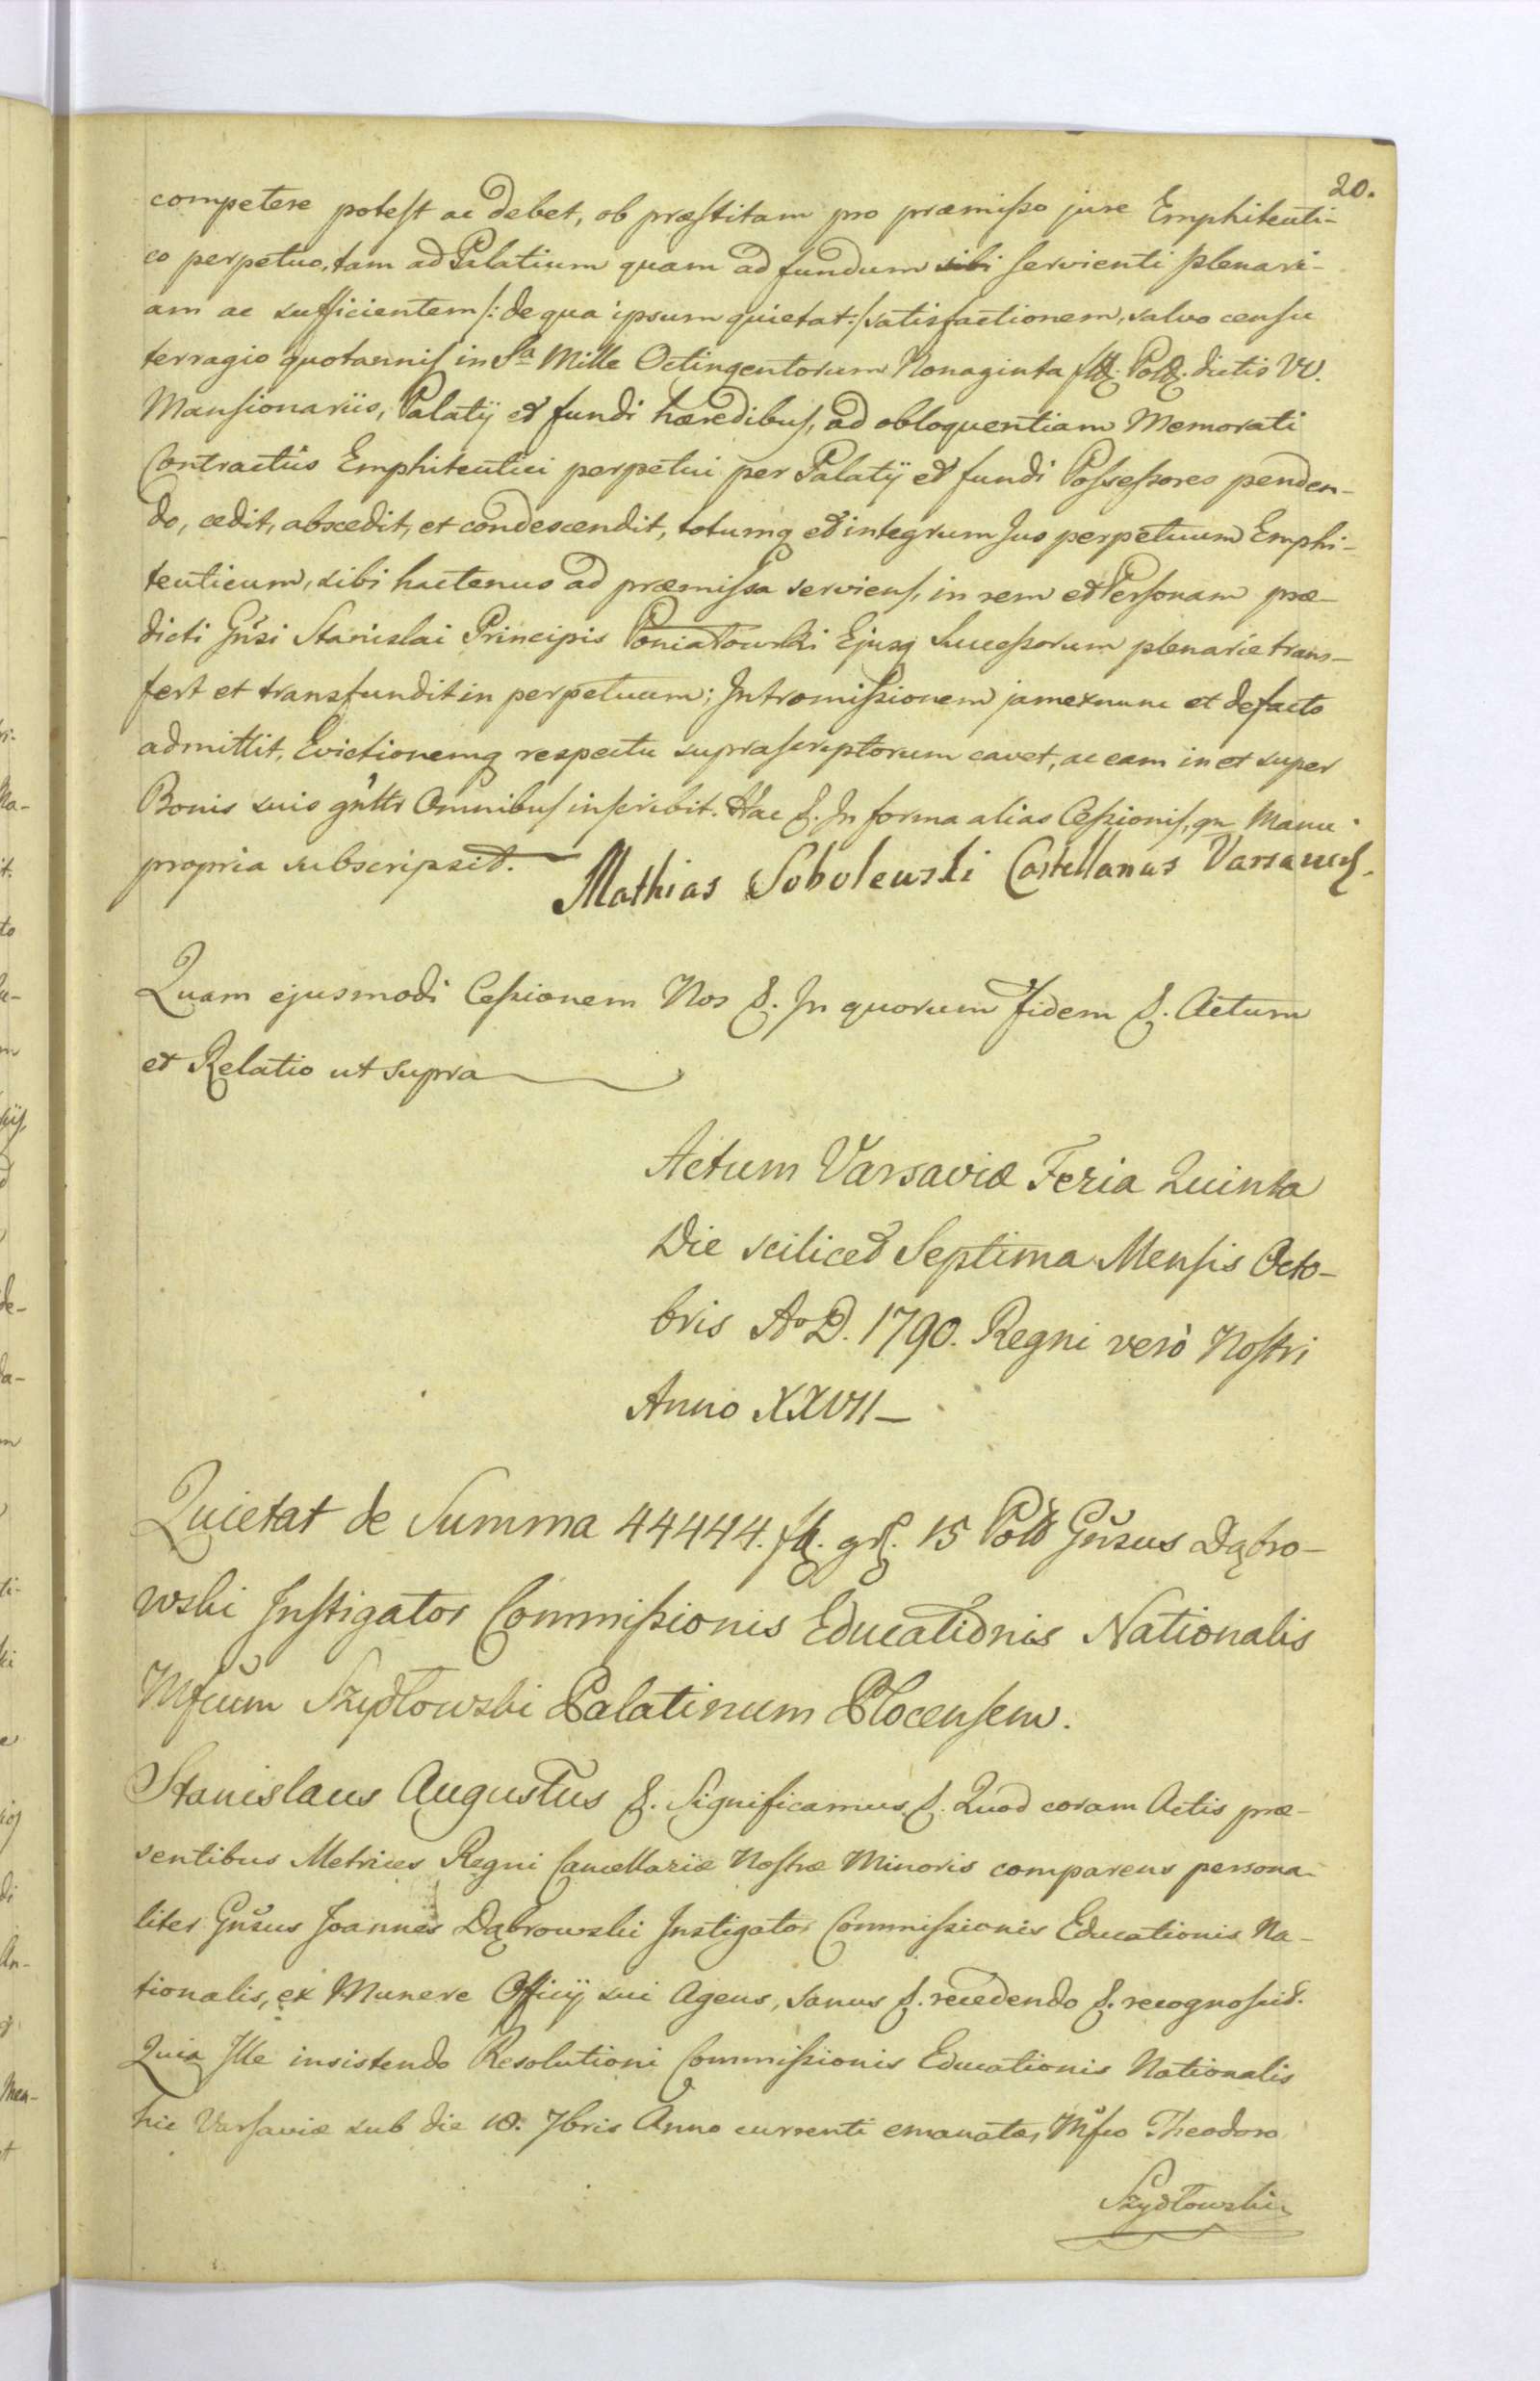 20.
competere potest ac debet, ob præstitam pro præmisso jure Emphiteuti-
co perpetuo, tam ad Palatium quam ad fundum sibi servienti plenari-
am ac sufficientem /: de qua ipsum quietat :/ satisfactionem, salvo censu
terragio quotannis in Sa Mille Octingentorum Nonaginta fl. Pol. dictis VV.
Mansionariis, Palatij et fundi hæredibus, ad obloquentiam Memorati
Contractûs Emphiteutici perpetui per Palatij et fundi Possessores penden-
do, cedit, abscedit, et condescendit, totumq et integrum Jus perpetuum Emphi-
teuticum, sibi hactenus ad præmissa serviens, in rem et Personam præ-
dicti Gnsi Stanislai Principis Poniatowski Ejusq Successorum plenarie trans-
fert et transfundit in perpetuum; Intromissionem jam ex nunc et de facto
admittit, Evictionemq respectu suprascriptorum cavet, ac eam in et super
Bonis suis gnltr Omnibus inscribit. Hac &. In forma alias Cessionis, qn Manu
propria subscripsit. Mathias Sobolewski Castellanus Varsavieñ.
Quam ejusmodi Cessionem Nos &. In quorum fidem &. Actum
et Relatio ut supra
Actum Varsaviæ Feria Quinta
Die scilicet Septima Mensis Octo-
bris Ao D. 1790. Regni verò Nostri
Anno XXVII
Quietat de Summa 44444. fl. gr. 15 Pol Gnsus Dąbro-
wski Instigator Commissionis Educationis Nationalis
Mfcum Szydłowski Palatinum Plocensem.
Stanislaus Augustus &. Significamus &. Quod coram Actis præ-
sentibus Metrices Regni Cancellariæ Nostræ Minoris comparens persona-
liter Gnsus Joannes Dąbrowski Instigator Commissionis Educationis Na-
tionalis, ex Munere Officij sui Agens, sanus &. recedendo &. recognoscit.
Quia Ille insistendo Resolutioni Commissionis Educationis Nationalis
hic Varsaviæ sub die 18. 7bris Anno currenti emanatæ, Mfco Theodoro
Szydłowski